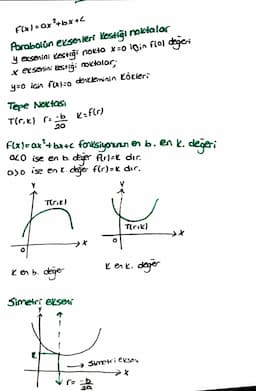 F(x)=ax²+bx+c
Parabolün eksenleri kestiği noktalar
y eksenini kestiği nokta x=0 için f(0) değeri
x eksenini kestiği noktalar;
y=0 için f(x)=0 denkleminin kökleri
Tepe Noktası
T(r,k) r= -b/2a k=f(r)
F(x)=ax²+bx+c fonksiyonunun en b. en k. değeri
a<0 ise en b. değer f(r)=k dır.
a>0 ise en k. değer f(r)=k dır.
y y
T(r,k)
T(r,k)
0 x 0 x
k en b. değer k en k. değer
Simetri ekseni
y
k
→ Simetri ekseni
0 x
r= -b/2a